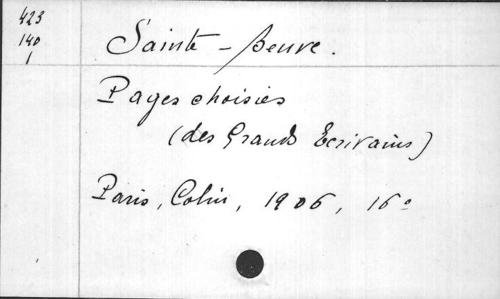 423
140
1
Sainte-Beuve.
Pages choisies
(des Grands Ecrivains)
Paris, Colin, 1906, 16°